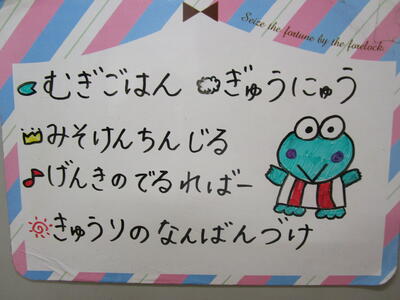 Seize the fortune by the forelock.
むぎごはん ぎゅうにゅう
みそけんちんじる
げんきのでるればー
きゅうりのなんばんづけ